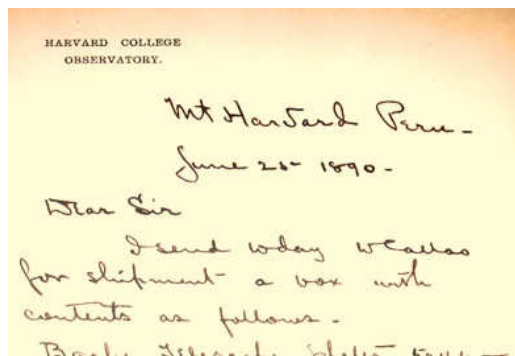 HARVARD COLLEGE
OBSERVATORY.
Mt Harvard Peru -
June 1890 -
Dear Sir
I send today to Callao
for shipment a box with
contents as follows -